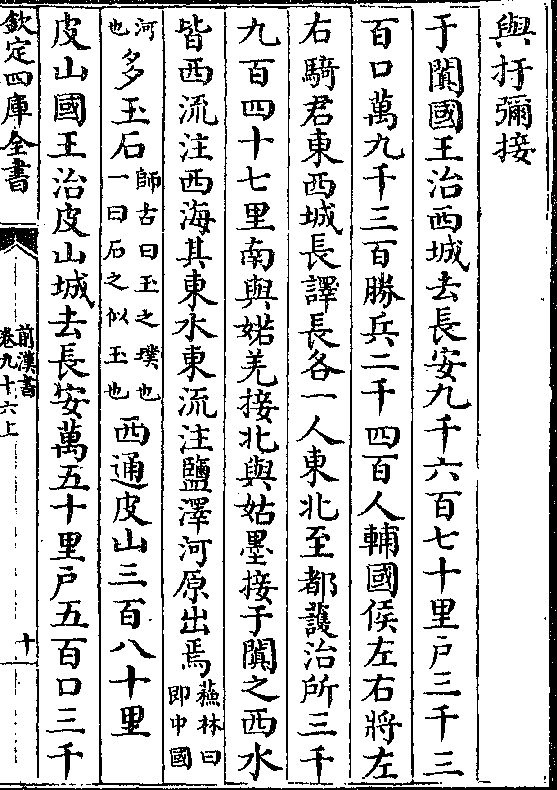 與扜彌接
于闐國王治西城去長安九千六百七十里戸三千三
百口萬九千三百勝兵二千四百人輔國侯左右將左
右騎君東西城長譯長各一人東北至都護治所三千
九百四十七里南與婼羌接北與姑墨接于闐之西水
皆西流注西海其東水東流注鹽澤河原出焉蘇林曰即中國
河也多玉石師古曰玉之璞也一曰石之似玉也西通皮山三百八十里
皮山國王治皮山城去長安萬五十里戸五百口三千
欽定四庫全書
前漢書
卷九十六上
十